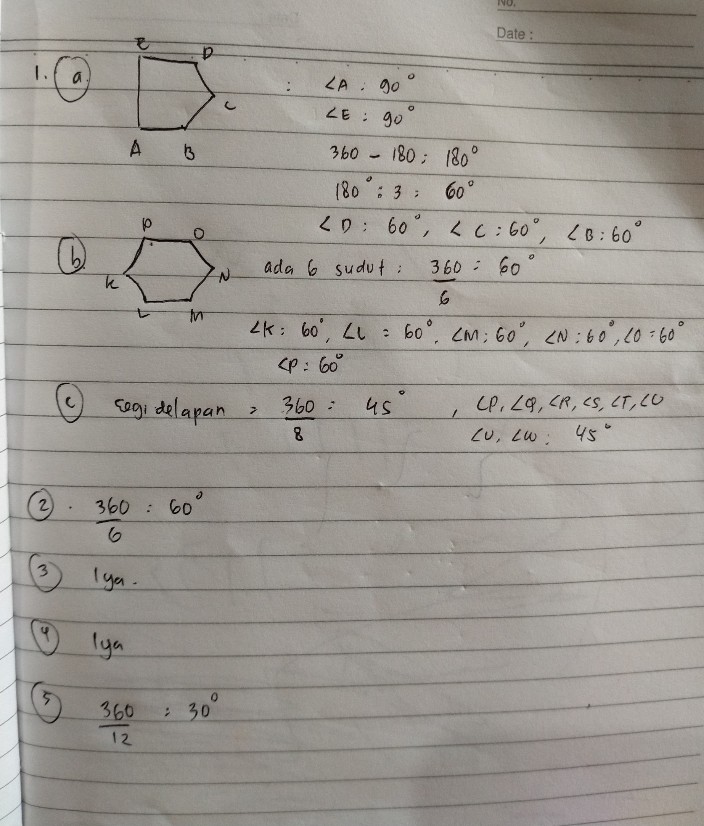 No.
Date :
1. a
E D
C
A B
: ∠A : 90°
∠E : 90°
360 - 180 : 180°
180° : 3 : 60°
∠D : 60°, ∠C : 60°, ∠B : 60°
b
P O
K N
L M
ada 6 sudut : 360/6 = 60°
∠K : 60°, ∠L = 60°, ∠M : 60°, ∠N : 60°, ∠O = 60°
∠P : 60°
c segi delapan = 360/8 = 45° , ∠P, ∠Q, ∠R, ∠S, ∠T, ∠U
∠V, ∠W : 45°
2 . 360/6 : 60°
3 Iya.
4 Iya
5 360/12 : 30°